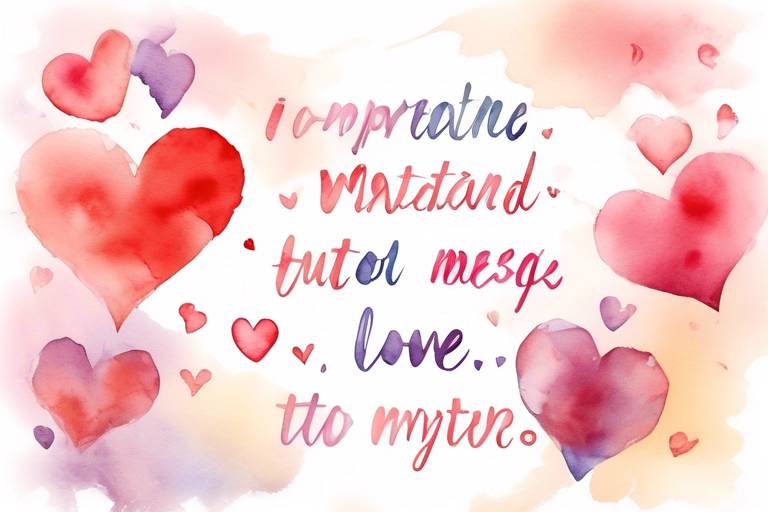 i ompratne.
Matctand
tutol mesge
love..
tto mytere.